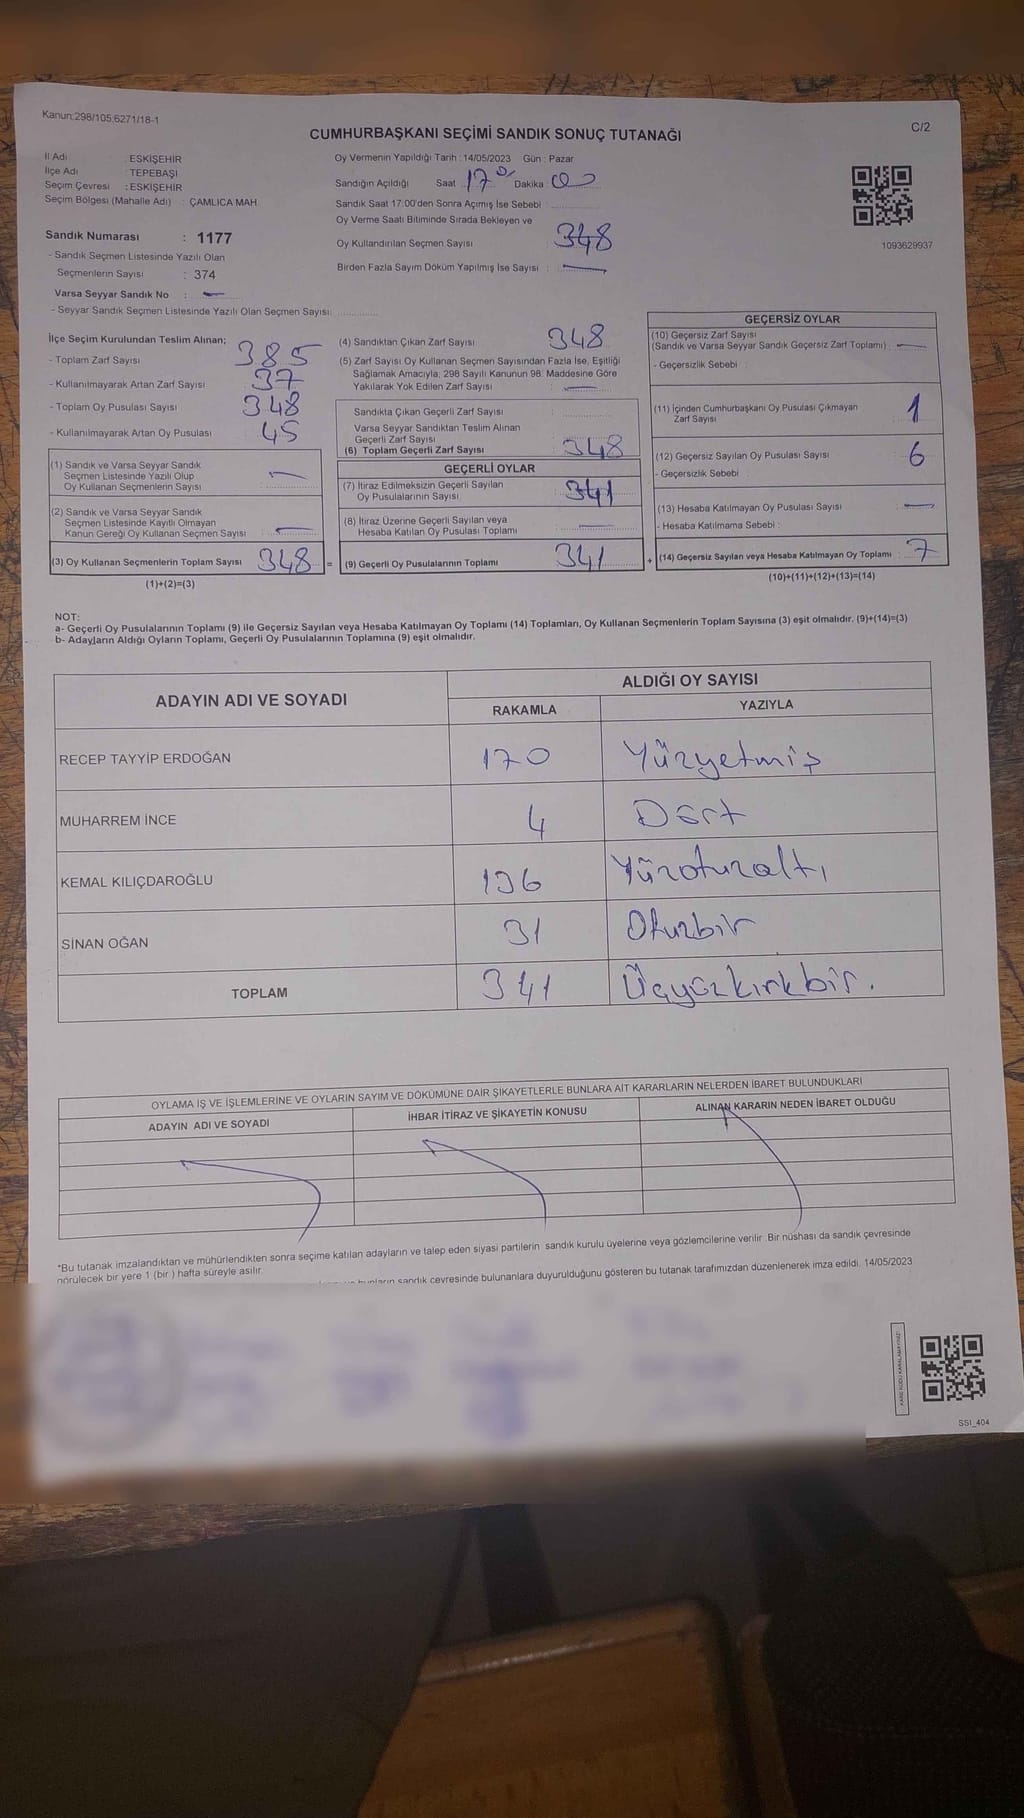 Kanun:298/105,6271/18-1
C/2
CUMHURBAŞKANI SEÇİMİ SANDIK SONUÇ TUTANAĞI
İl Adı : ESKİŞEHİR
İlçe Adı : TEPEBAŞI
Seçim Çevresi : ESKİŞEHİR
Seçim Bölgesi (Mahalle Adı) : ÇAMLICA MAH.
Sandık Numarası : 1177
- Sandık Seçmen Listesinde Yazılı Olan
Seçmenlerin Sayısı : 374
Varsa Seyyar Sandık No : —
- Seyyar Sandık Seçmen Listesinde Yazılı Olan Seçmen Sayısı:
Oy Vermenin Yapıldığı Tarih : 14/05/2023 Gün : Pazar
Sandığın Açıldığı Saat 17 Dakika 00
Sandık Saat 17:00'den Sonra Açımış İse Sebebi :
Oy Verme Saati Bitiminde Sırada Bekleyen ve
Oy Kullandırılan Seçmen Sayısı : 348
Birden Fazla Sayım Döküm Yapılmış İse Sayısı : —
1093629937
İlçe Seçim Kurulundan Teslim Alınan;
- Toplam Zarf Sayısı : 385
- Kullanılmayarak Artan Zarf Sayısı : 37
- Toplam Oy Pusulası Sayısı : 348
- Kullanılmayarak Artan Oy Pusulası : 45
(1) Sandık ve Varsa Seyyar Sandık
Seçmen Listesinde Yazılı Olup
Oy Kullanan Seçmenlerin Sayısı : —
(2) Sandık ve Varsa Seyyar Sandık
Seçmen Listesinde Kayıtlı Olmayan
Kanun Gereği Oy Kullanan Seçmen Sayısı : —
(3) Oy Kullanan Seçmenlerin Toplam Sayısı : 348 =
(1)+(2)=(3)
(4) Sandıktan Çıkan Zarf Sayısı : 348
(5) Zarf Sayısı Oy Kullanan Seçmen Sayısından Fazla İse, Eşitliği
Sağlamak Amacıyla, 298 Sayılı Kanunun 98. Maddesine Göre
Yakılarak Yok Edilen Zarf Sayısı : —
Sandıkta Çıkan Geçerli Zarf Sayısı :
Varsa Seyyar Sandıktan Teslim Alınan
Geçerli Zarf Sayısı
(6) Toplam Geçerli Zarf Sayısı : 348
GEÇERLİ OYLAR
(7) İtiraz Edilmeksizin Geçerli Sayılan
Oy Pusulalarının Sayısı : 341
(8) İtiraz Üzerine Geçerli Sayılan veya
Hesaba Katılan Oy Pusulası Toplamı : —
(9) Geçerli Oy Pusulalarının Toplamı : 341 +
GEÇERSİZ OYLAR
(10) Geçersiz Zarf Sayısı
(Sandık ve Varsa Seyyar Sandık Geçersiz Zarf Toplamı) : —
- Geçersizlik Sebebi :
(11) İçinden Cumhurbaşkanı Oy Pusulası Çıkmayan
Zarf Sayısı : 1
(12) Geçersiz Sayılan Oy Pusulası Sayısı : 6
- Geçersizlik Sebebi :
(13) Hesaba Katılmayan Oy Pusulası Sayısı : —
- Hesaba Katılmama Sebebi :
(14) Geçersiz Sayılan veya Hesaba Katılmayan Oy Toplamı : 7
(10)+(11)+(12)+(13)=(14)
NOT:
a- Geçerli Oy Pusulalarının Toplamı (9) ile Geçersiz Sayılan veya Hesaba Katılmayan Oy Toplamı (14) Toplamları, Oy Kullanan Seçmenlerin Toplam Sayısına (3) eşit olmalıdır. (9)+(14)=(3)
b- Adayların Aldığı Oyların Toplamı, Geçerli Oy Pusulalarının Toplamına (9) eşit olmalıdır.
ADAYIN ADI VE SOYADI
ALDIĞI OY SAYISI
RAKAMLA YAZIYLA
RECEP TAYYİP ERDOĞAN 170 Yüzyetmiş
MUHARREM İNCE 4 Dört
KEMAL KILIÇDAROĞLU 136 Yüzotuzaltı
SİNAN OĞAN 31 Otuzbir
TOPLAM 341 Üçyüzkırkbir.
OYLAMA İŞ VE İŞLEMLERİNE VE OYLARIN SAYIM VE DÖKÜMÜNE DAİR ŞİKAYETLERLE BUNLARA AİT KARARLARIN NELERDEN İBARET BULUNDUKLARI
ADAYIN ADI VE SOYADI İHBAR İTİRAZ VE ŞİKAYETİN KONUSU ALINAN KARARIN NEDEN İBARET OLDUĞU
*Bu tutanak imzalandıktan ve mühürlendikten sonra seçime katılan adayların ve talep eden siyasi partilerin sandık kurulu üyelerine veya gözlemcilerine verilir. Bir nüshası da sandık çevresinde
görülecek bir yere 1 (bir ) hafta süreyle asılır.
sandık çevresinde bulunanlara duyurulduğunu gösteren bu tutanak tarafımızdan düzenlenerek imza edildi. 14/05/2023
KARE KODU KARALAMAYINIZ!
SS1_404